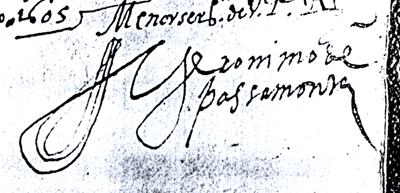 1605 Menor serb. de V. P.
Jeronimo de
Passamonte